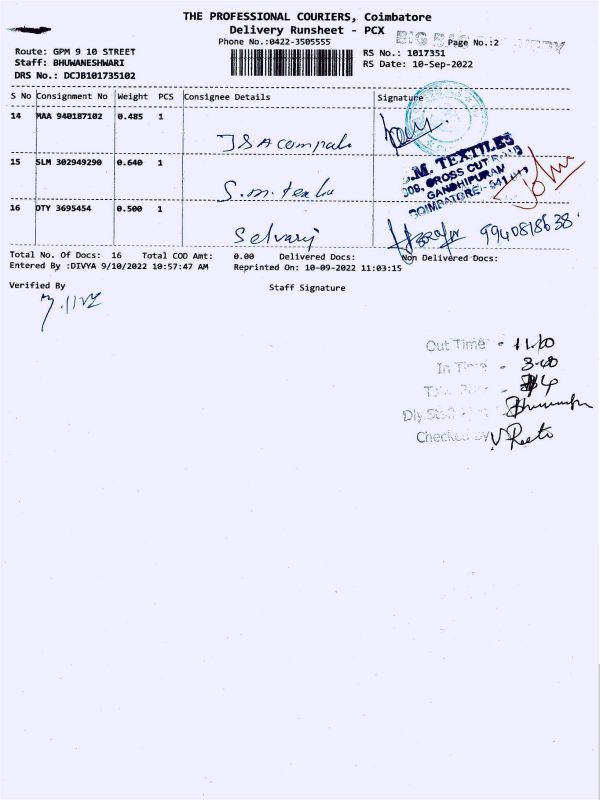 THE PROFESSIONAL COURIERS, Coimbatore
Delivery Runsheet - PCX
Phone No.:0422-3505555
BIG BAG
Page No.:2
Route: GPM 9 10 STREET
RS No.: 1017351
Staff: BHUWANESHWARI
RS Date: 10-Sep-2022
DRS No.: DCJB101735102
S No Consignment No Weight PCS Consignee Details Signature
14 MAA 940187102 0.485 1
15 SLM 302949290 0.640 1
S.M. TEXTILES
CROSS CUT ROAD
GANDHIPURAM
COIMBATORE
John
16 DTY 3695454 0.500 1
Selvaraj
Total No. Of Docs: 16 Total COD Amt: 0.00 Delivered Docs: Non Delivered Docs:
Entered By :DIVYA 9/10/2022 10:57:47 AM Reprinted On: 10-09-2022 11:03:15
Verified By
Staff Signature
Out Time - 11.10
In Time - 3.40
Dly.Staff
Checked By